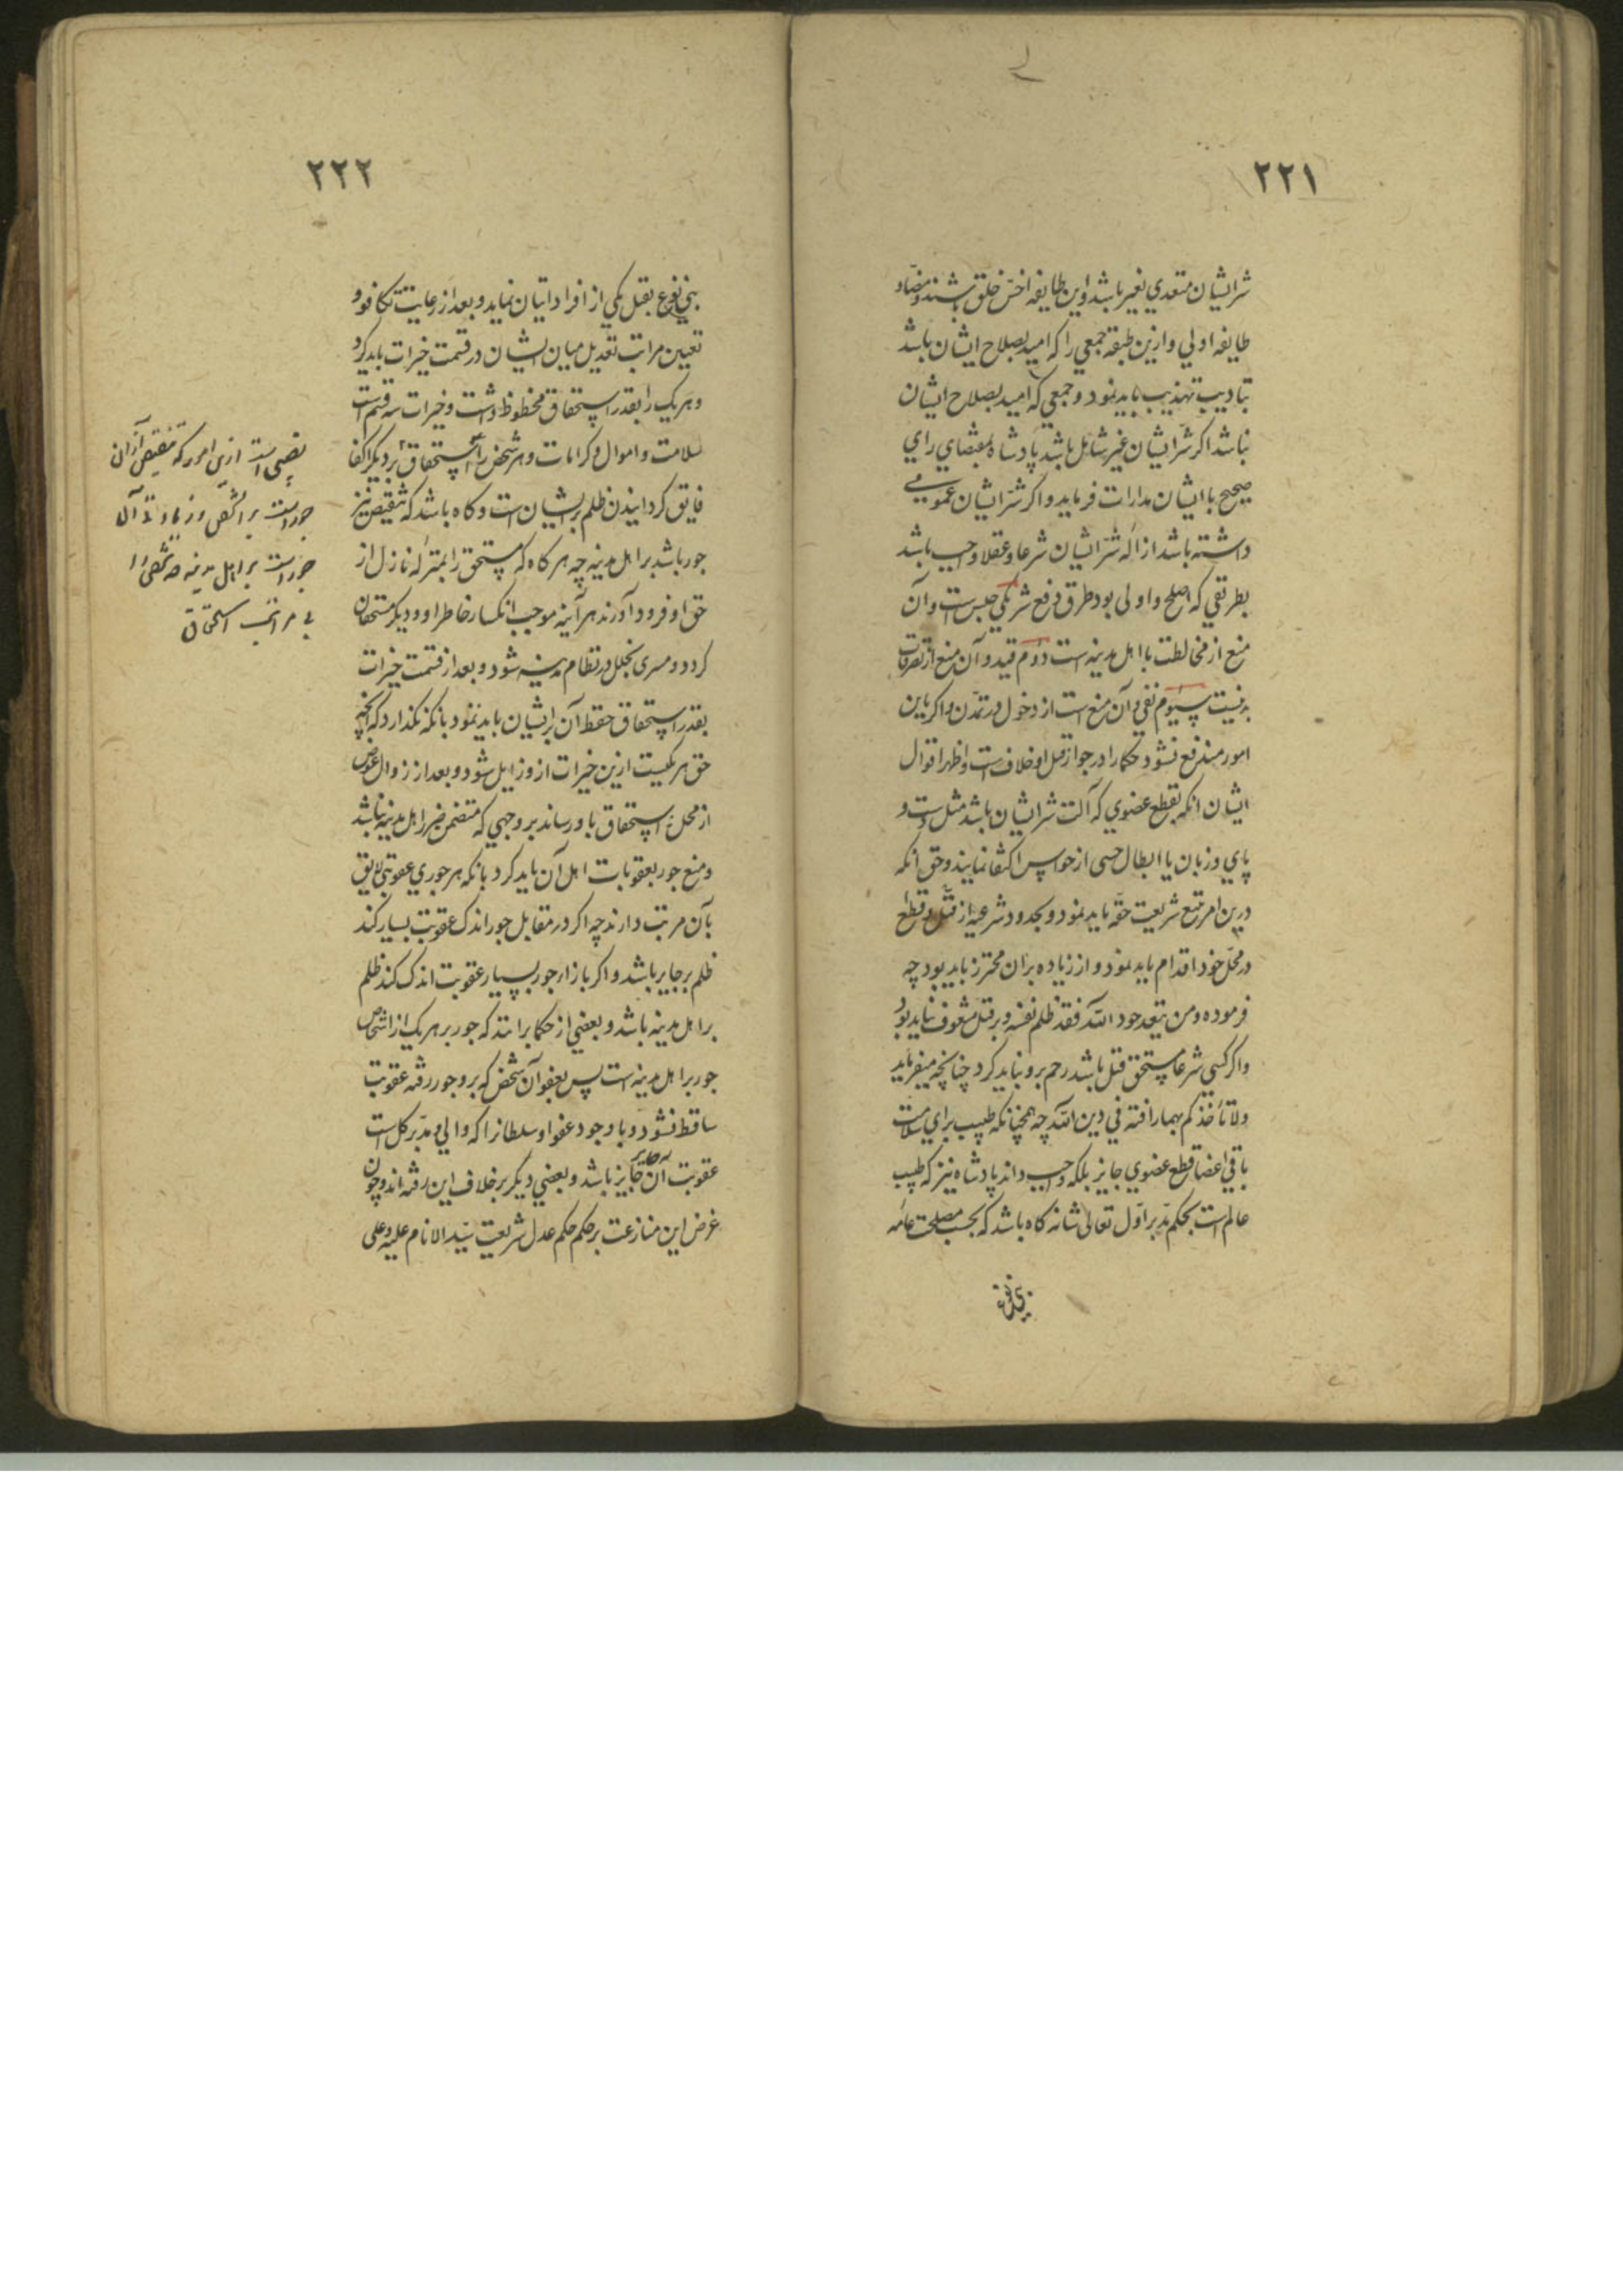 ٢٢١
شر ایشان متعدی بغیر باشد و این طایفه اخسّ خلق باشند و مضادّ
طایفه اولی و ازین طبقه جمعی را که امید بصلاح ایشان باشد
بتادیب تهذیب باید نمود و جمعی که امید بصلاح ایشان
نباشد اکر شرّ ایشان غیر شامل باشد پادشاه بمقتضای رای
صحیح با ایشان مدارات فرماید و اکر شرّ ایشان عمومی
داشته باشد ازاله شرّ ایشان شرعا و عقلا واجب باشد
بطریقی که اصلح و اولی بود و طرق دفع شر یکی حبس است و آن
منع از مخالطت با اهل مدینه است دوم قید و آن منع از تصرفات
بدنیست سیوم نفی و آن منع است از دخول در تمدّن و اکر باین
امور مندفع نشود حکما را در جواز قتل او خلاف است و اظهر اقوال
ایشان انکه بقطع عضوی که آلت شر ایشان باشد مثل دست و
پای و زبان یا ابطال حسی از حواس اکتفا نمایند و حق انکه
درین امر تتبع شریعت حقّه باید نمود و بحدود شرعیه از قتل و قطع
در محلّ خود اقدام باید نمود و از زیاده بران محترز باید بود چه
فرموده و من یتعد حدود اللّه فقد ظلم نفسه و بر قتل مشعوف نباید بود
و اکر کسی شرعا مستحق قتل باشد رحم برو نباید کرد چنانچه میفرماید
ولا تأخذکم بهما رافة فی دین اللّه چه همچنانکه طبیب برای سلامت
باقی اعضا قطع عضوی جایز بلکه واجب داند پادشاه نیز که طبیب
عالم است بحکم مدبر اوّل تعالی شانه کاه باشد که بحسب مصلحت عامّه
بنی نوع
٢٢٢
بنی نوع بقتل یکی از افراد اتیان نماید و بعد از رعایت تکافو و
تعیین مراتب تعدیل میان ایشان در قسمت خیرات باید کرد
و هر یک را بقدر استحقاق محظوظ داشت و خیرات سه قسم است
سلامت و اموال و کرامات و هر شخص را استحقاق بر دیکر اکفا
فایق کردانیدن ظلم بر ایشان است و کاه باشد که تنقیص نیز
جور باشد بر اهل مدینه چه هر کاه که مستحق را بمنزله نازل از
حق او فرود آورند هر آینه موجب انکسار خاطر او و دیکر مستحقان
کردد و مسری بخلل در نظام مدینه شود و بعد از قسمت خیرات
بقدر استحقاق حفظ آن بر ایشان باید نمود بانکه نکذارد که آنچه
حق هر یکیست ازین خیرات ازو زایل شود و بعد از زوال عوض
از محل استحقاق باو رساند بر وجهی که متضمن ضرر اهل مدینه نباشد
و منع جور بعقوبات اهل آن باید کرد بانکه هر جوری عقوبتی لایق
بآن مرتب دارند چه اکر در مقابل جور اندک عقوبت بسیار کند
ظلم بر جایر باشد و اکر بازاء جور بسیار عقوبت اندک کند ظلم
بر اهل مدینه باشد و بعضی از حکما برانند که جور بر هر یک از اشخاص
جور بر اهل مدینه است پس بعفو آن شخص که برو جور رفته عقوبت
ساقط نشود و با وجود عفو او سلطانرا که والی و مدبّر کل است
عقوبت آن جایر جایز باشد و بعضی دیکر بر خلاف این رفته اند و چون
غرض این منازعت بر حکم حکم عدل شریعت سیّد الانام علیه و علی
نصیبی است ازین امور که تنقیص از ان
جور است بر آنشخص و زیادتی آن
جور است بر اهل مدینه
مراتب استحقاق